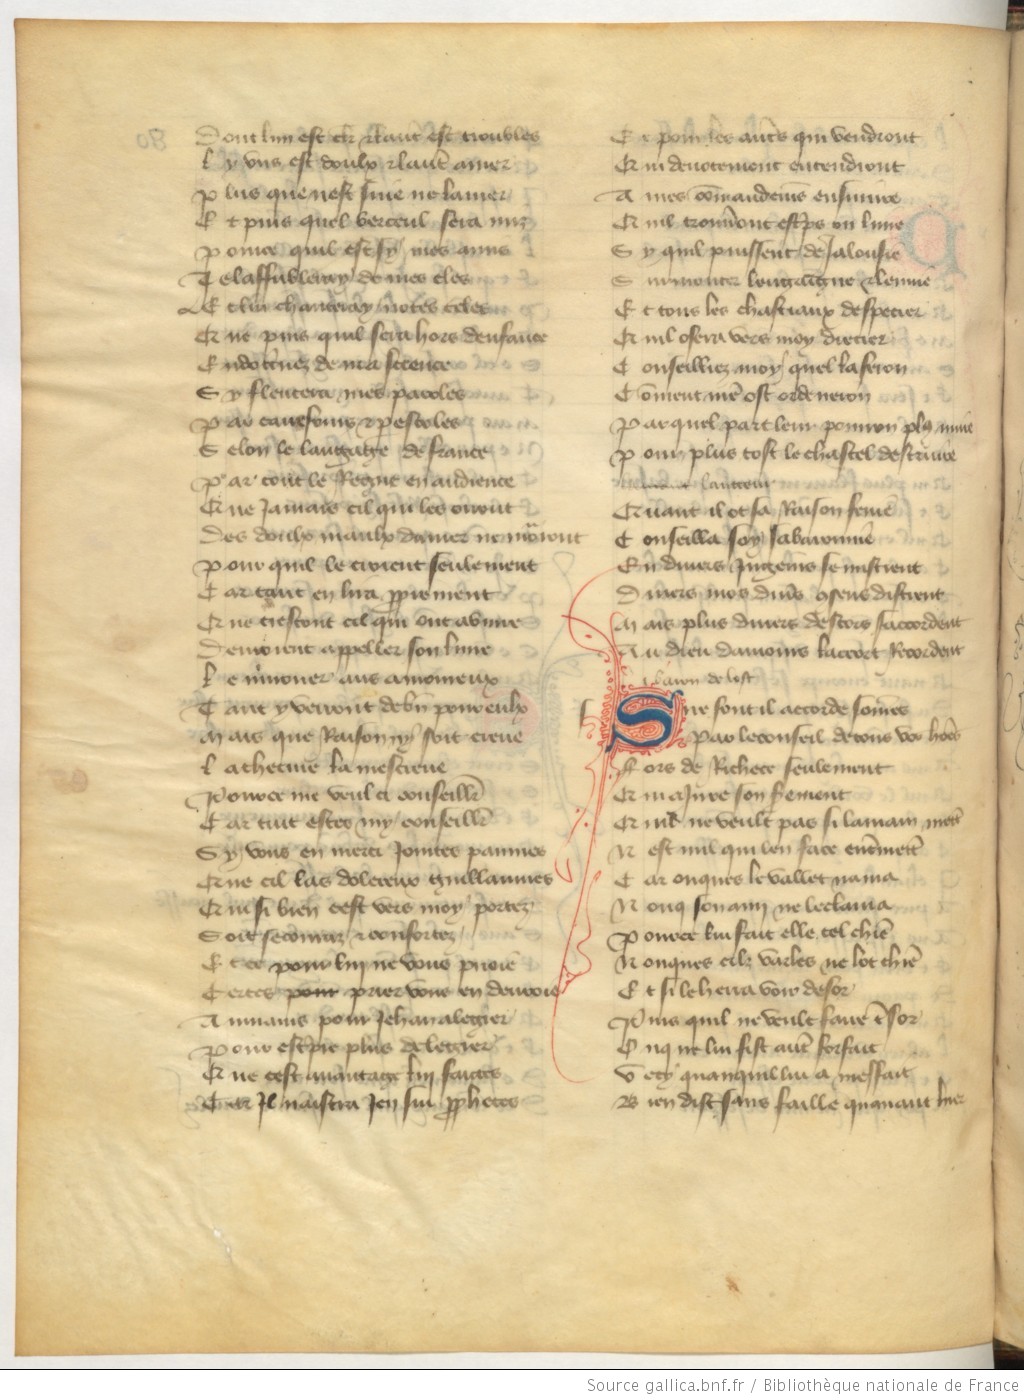 Dont lun est cler et lautre est troubles
L y uns est doulx et lautre amer
P lus que nest suie ne la mer
E t puis quel berceul sera mis
P ource quil est sy mes amis
J e laffubleray de mes eles
E t lui chanteray notes teles
Q ue puis quil sera hors denfance
E ndoctrinez de ma science
S y fleutera mes paroles
P ar carrefours et par escoles
S elon le langage de france
P ar tout le Regne en audience
Q ue Jamais cil qui les orront
Des doulx maulx damer ne mourront
P our quil le croient seulement
C ar tant en lira proprement
Q ue trestout cil qui ont a vivre
Devroient appeller son livre
L e mirouer aus amoureux
T ant y verront de bien pour eulx
M ais que Raison ny soit creue
L a chetive la mescreue
P ource me veul ci conseillier
C ar tuit estes my conseillier
S y vous en merci Jointes paumes
Q ue cil las dolereux Guillaumes
Q ui si bien cest vers moy portez
S oit secouruz et confortez
E t ce pour luy ne vous prioie
C ertes pour prier vous en devroie
A u mains pour Jehan alegier
P our escripre plus de legier
Q ue cest avantage luy faites
C ar Il naistra Jen sui prophetes
E t pour les autres qui vendront
Q ui devotement entendront
A mes commandemens ensuivre
Q uil trouveront escrips ou livre
S y quil puissent de Jalousie
S urmonter lengaigne et lenvie
E t tous les chastiaux despecier
Q uil osera vers moy drecier
C onseilliez moy quel la feron
C oment mes ost ordeneron
P ar quel part leur pourron plus nuire
P our plus tost le chastel destruire
lauteur
Q uant il ot sa Raison fenie
C onseilla soy sa baronnie
E n divers Jugemens se mistrent
D ivers mos divers assens distrent
M ais plus divers descors saccordent
A u dieu damours laccort Recordent
S ire font il acorde sommes
Par le conseil de tous voz hommes
F ors de Richece seulement
Q ui a Jure son serement
Q uil ne veult pas
C ar onques le vallet nama
N onq son amy ne le clama
P ource lui fait elle tel chiere
N onques cilz varles ne lot chiere
P uis quil ne veult faire tresor
O nq ne lui fist autre forfait
V ecy quanquil lui a meffait
B ien dist sans faille quavant hier